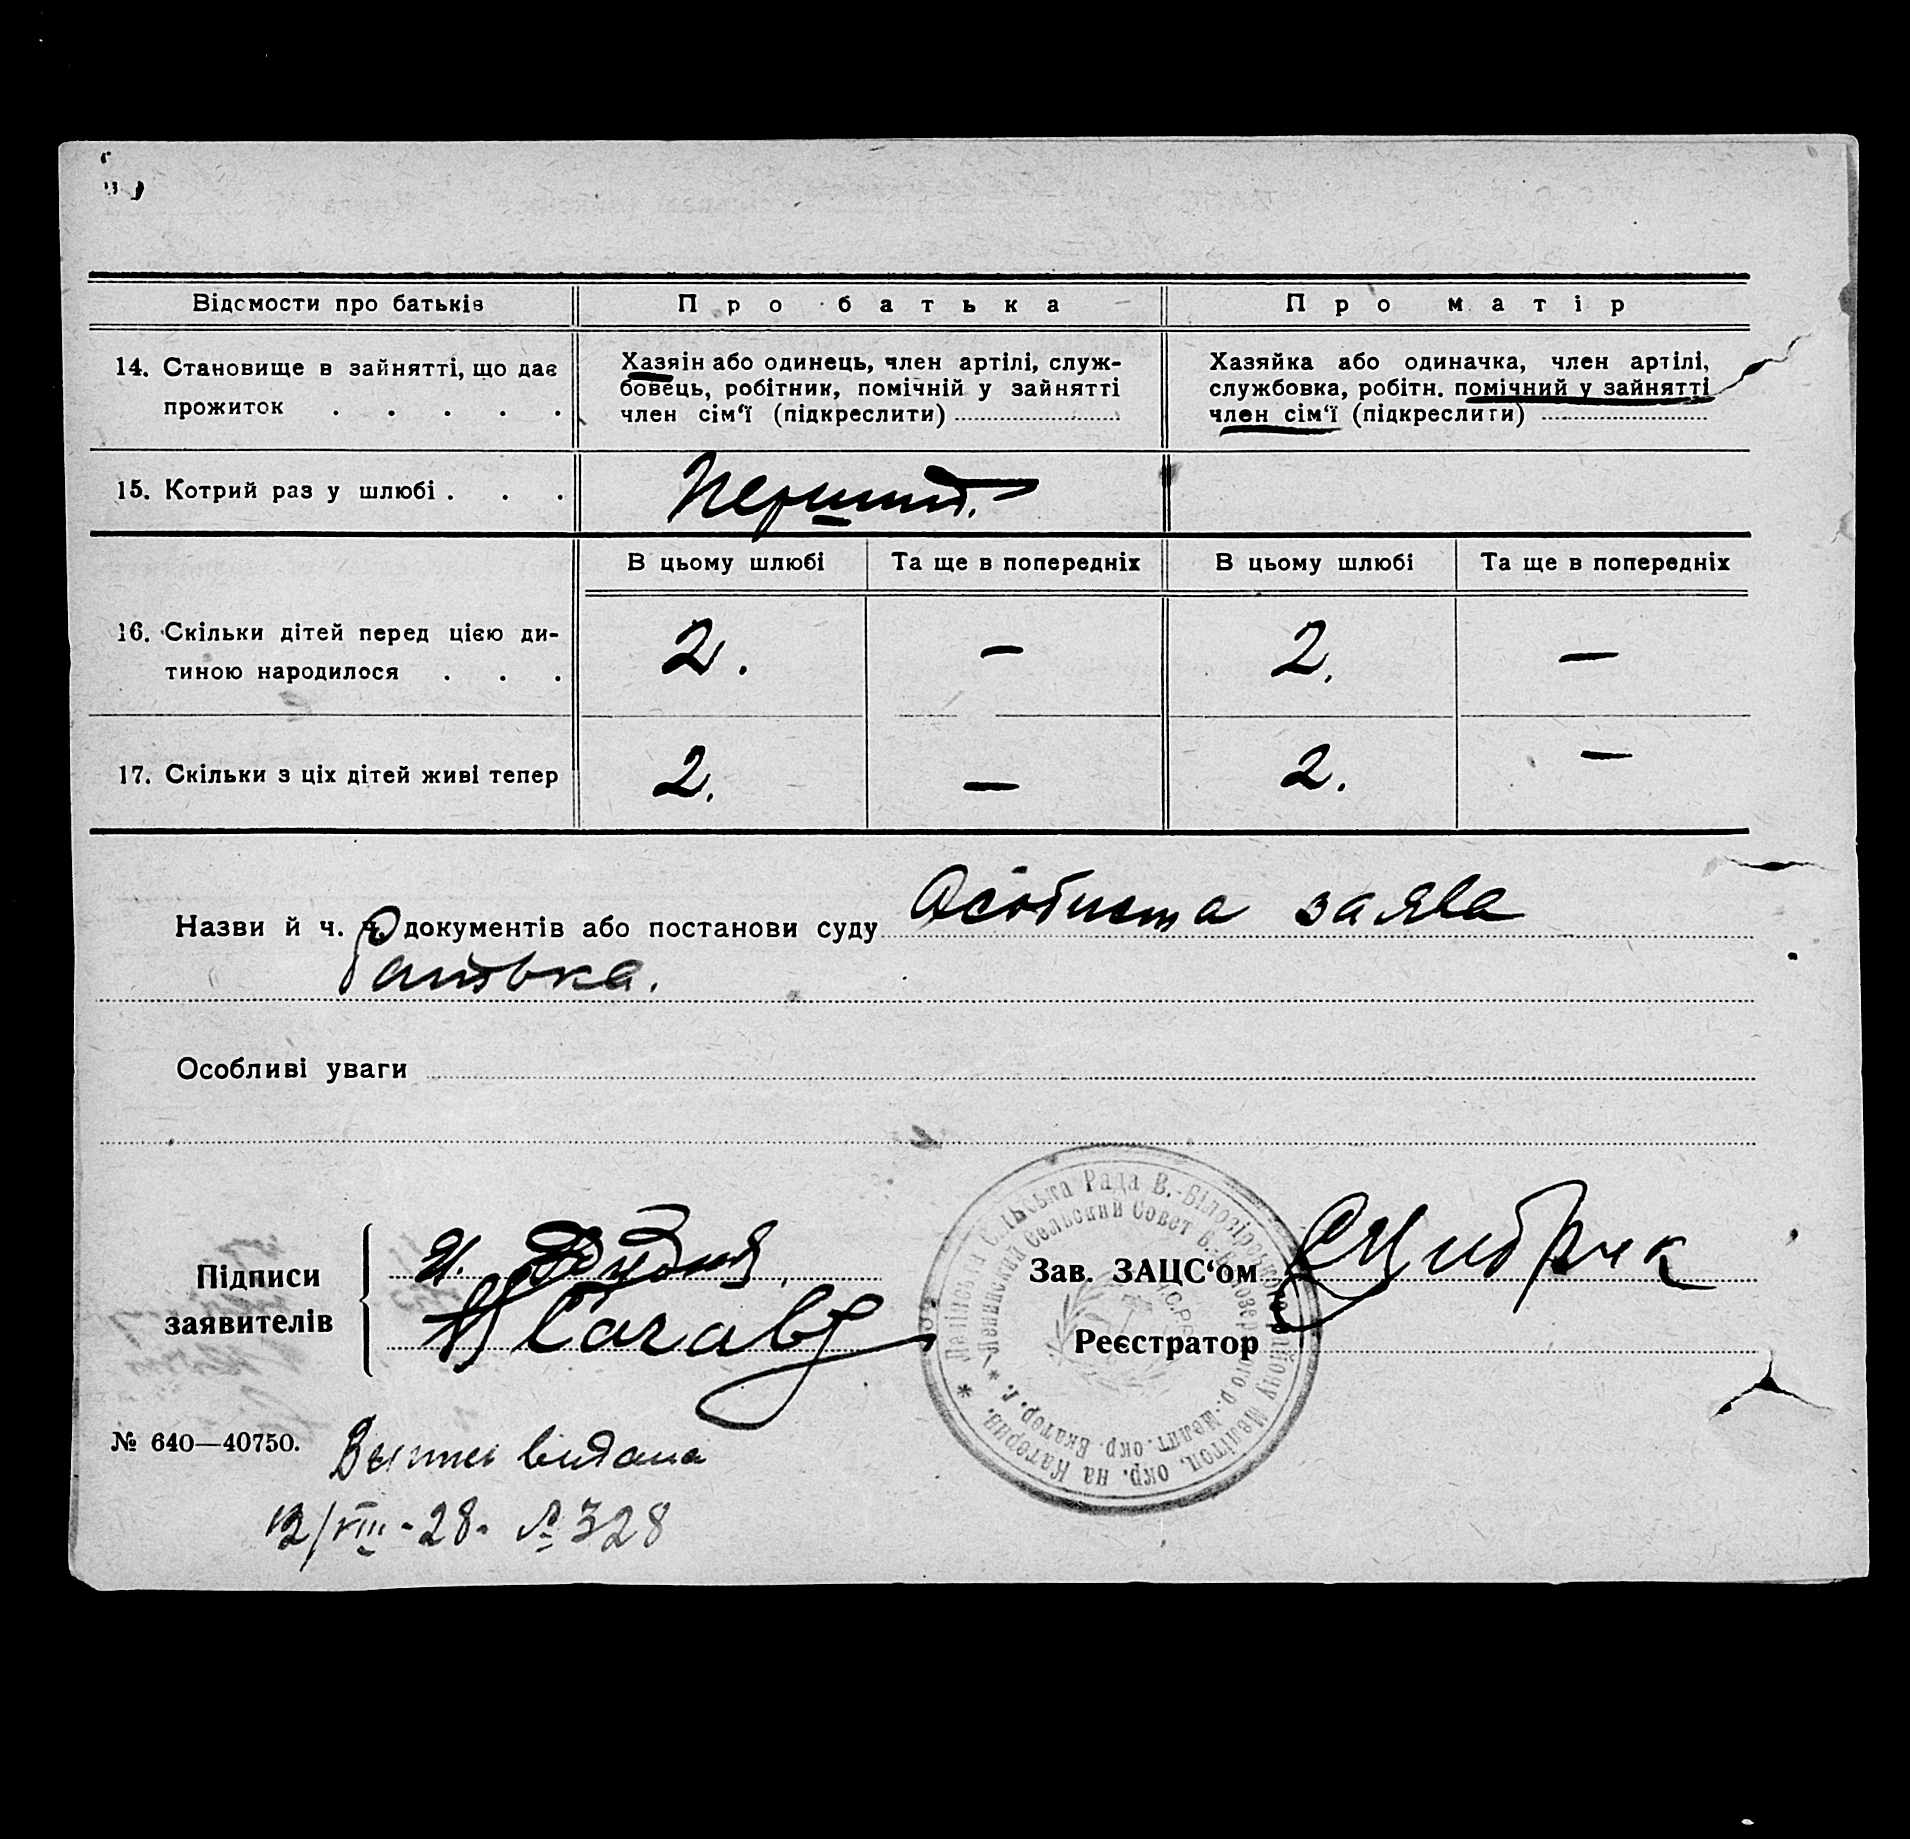 Відомости про батьків
Про батька
Про матір
14. Становище в зайнятті, що дає
прожиток . . . . .
Хазяін або одинець, член артілі, служ-
бовець, робітник, помічній у зайнятті
член сім‘ї (підкреслити)
Хазяйка або одиначка, член артілі,
службовка, робітн. помічний у зайнятті
член сім‘ї (підкреслити)
15. Котрий раз у шлюбі . . .
Перший.
В цьому шлюбі
Та ще в попередніх
В цьому шлюбі
Та ще в попередніх
16. Скільки дітей перед цією ди-
тиною народилося . . .
2. — 2. —
17. Скільки з ціх дітей живі тепер
2. — 2. —
Назви й ч. ч. документів або постанови суду Особиста заява
батька.
Особливі уваги
Підписи
заявителів
Зав. ЗАЦС‘ом
Реєстратор
Сільська Рада В.-Білозірського району Мелітоп. окр. на Катерин.
Ленинский Сельский Совет В.-Белозерского р. Мелит. окр. Екатер. г.
№ 640—40750.
видана
12/VIII-28. № 328